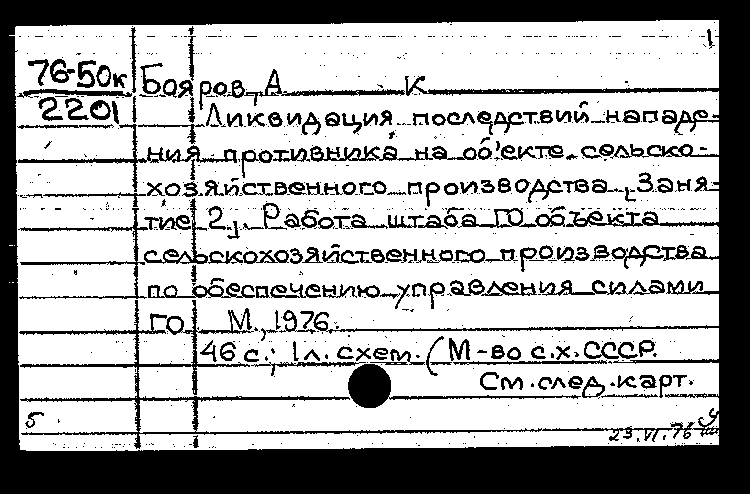 1
76-50к Бояров, А К
2201 Ликвидация последствий нападе-
ния противника на об'екте сельско-
хозяйственного производства [Заня-
тие 2]. Работа штаба ГО объекта
сельскохозяйственного производства
по обеспечению управления силами
ГО М., 1976.
46 с.; 1 л. схем. (М-во с.х. СССР.
См. след. карт.
5
23.VI.76